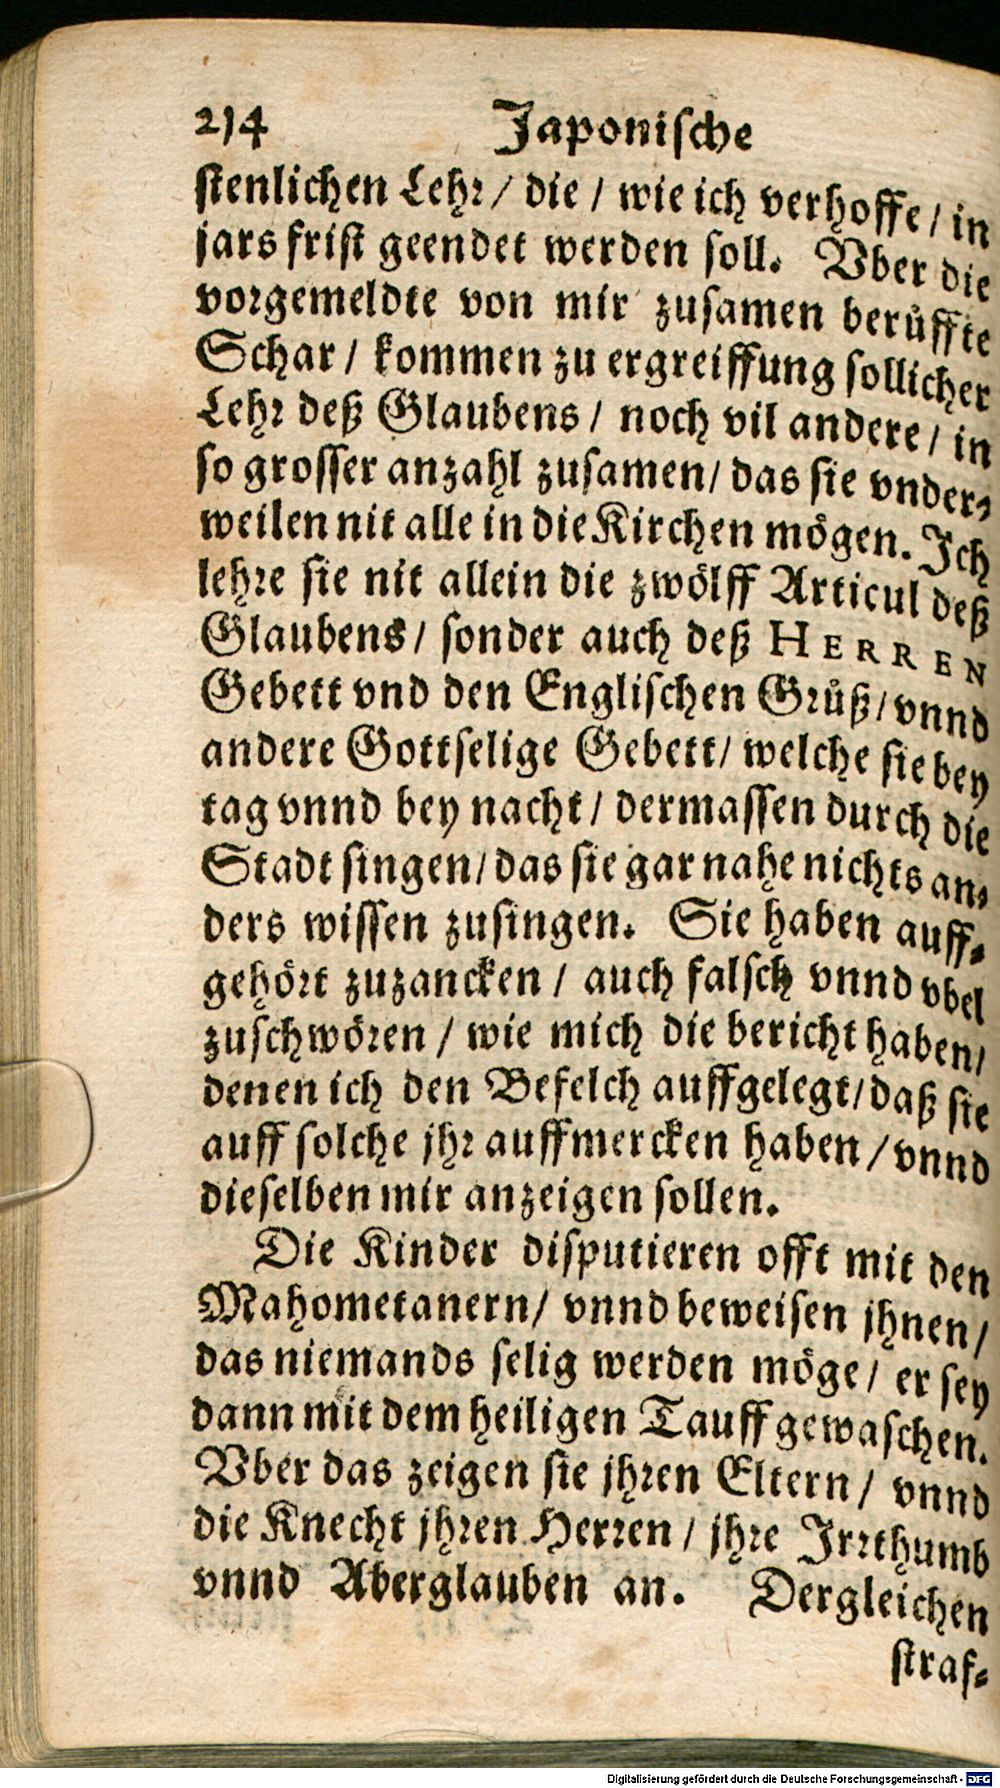 214 Japonische
stenlichen Lehr/ die / wie ich verhoffe / in
jars frist geendet werden soll. Vber die
vorgemeldte von mir zusamen berůffte
Schar / kommen zu ergreiffung sollicher
Lehr deß Glaubens / noch vil andere / in
so grosser anzahl zusamen/ das sie vnder-
weilen nit alle in die Kirchen mögen. Ich
lehre sie nit allein die zwölff Articul deß
Glaubens/ sonder auch deß HERREN
Gebett vnd den Englischen Grůß/ vnnd
andere Gottselige Gebett/ welche sie bey
tag vnnd bey nacht / dermassen durch die
Stadt singen/ das sie gar nahe nichts an-
ders wissen zusingen. Sie haben auff-
gehört zuzancken / auch falsch vnnd vbel
zuschwören / wie mich die bericht haben/
denen ich den Befelch auffgelegt/ daß sie
auff solche jhr auffmercken haben / vnnd
dieselben mir anzeigen sollen.
Die Kinder disputieren offt mit den
Mahometanern/ vnnd beweisen jhnen/
das niemands selig werden möge / er sey
dann mit dem heiligen Tauff gewaschen.
Vber das zeigen sie jhren Eltern / vnnd
die Knecht jhren Herren / jhre Irrthumb
vnnd Aberglauben an. Dergleichen
straf-
Digitalisierung gefördert durch die Deutsche Forschungsgemeinschaft - DFG